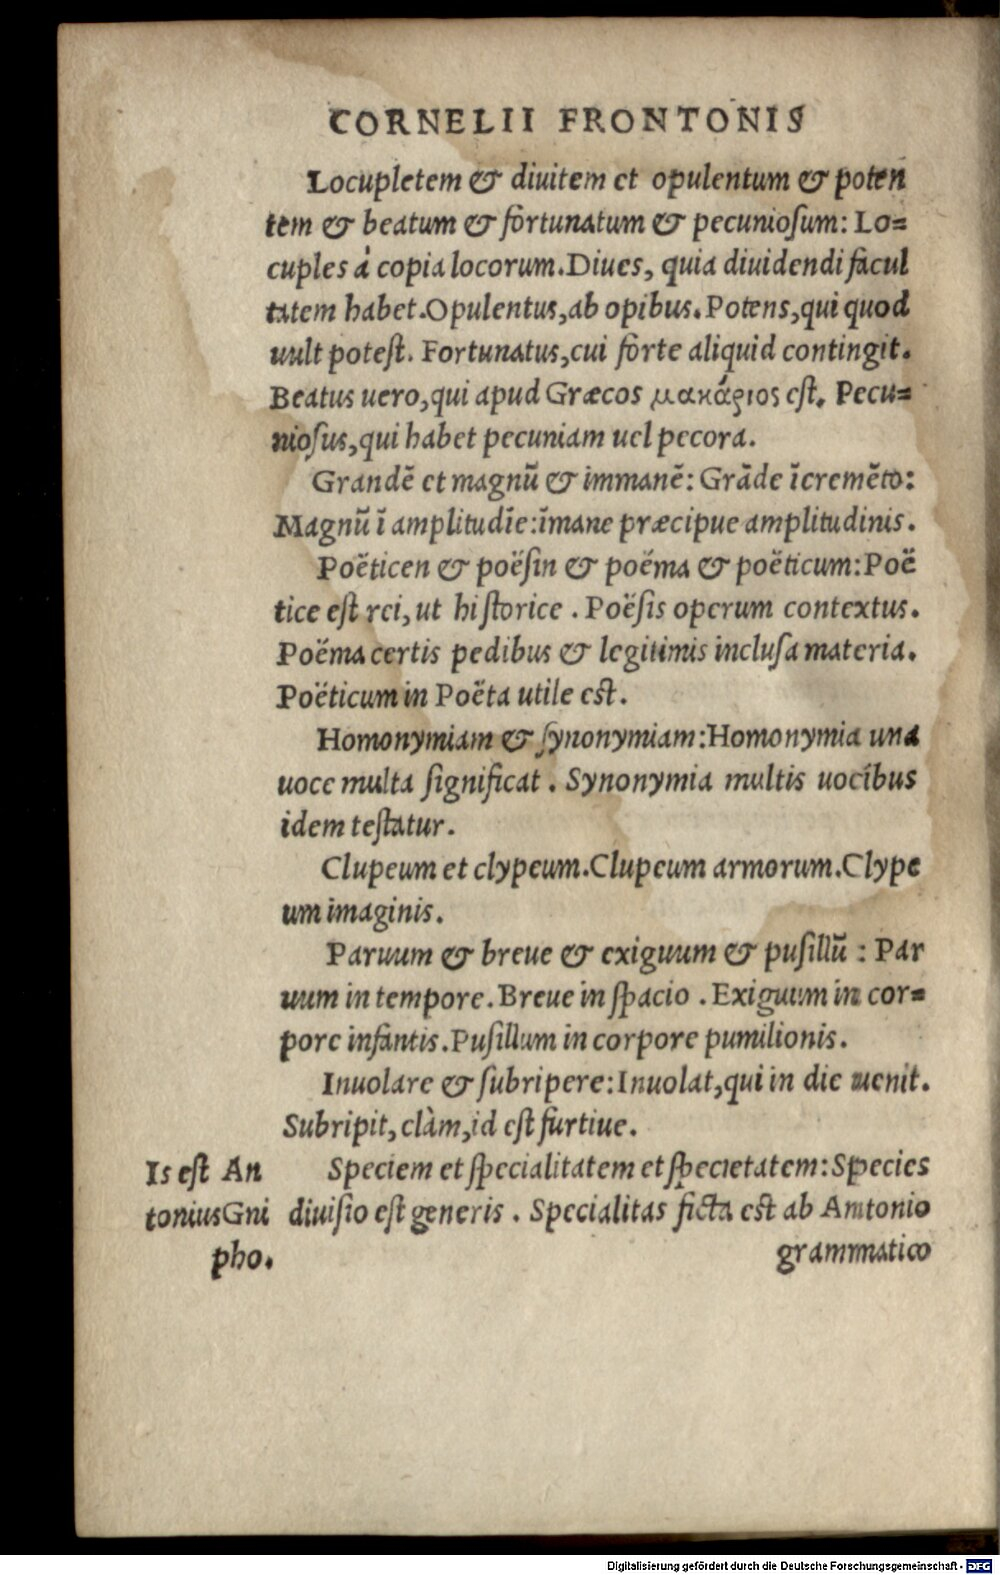 CORNELII FRONTONIS
Locupletem & diuitem et opulentum & poten
tem & beatum & fortunatum & pecuniosum: Lo=
cuples à copia locorum. Diues, quia diuidendi facul
tatem habet. Opulentus, ab opibus. Potens, qui quod
uult potest. Fortunatus, cui forte aliquid contingit.
Beatus uero, qui apud Græcos μακάριος est. Pecu=
niosus, qui habet pecuniam uel pecora.
Grandē et magnū & immanē: Grāde īcremēto:
Magnū ī amplitudīe: īmane præcipue amplitudinis.
Poëticen & poësin & poëma & poëticum: Poë
tice est rei, ut historice. Poësis operum contextus.
Poëma certis pedibus & legitimis inclusa materia.
Poëticum in Poëta utile est.
Homonymiam & synonymiam: Homonymia una
uoce multa significat. Synonymia multis uocibus
idem testatur.
Clupeum et clypeum. Clupeum armorum. Clype
um imaginis.
Paruum & breue & exiguum & pusillū: Par
uum in tempore. Breue in spacio. Exiguum in cor=
pore infantis. Pusillum in corpore pumilionis.
Inuolare & subripere: Inuolat, qui in die uenit.
Subripit, clàm, id est furtiue.
Speciem et specialitatem et specietatem: Species
diuisio est generis. Specialitas ficta est ab Antonio
grammatico
Is est An
tonius Gni
pho.
Digitalisierung gefördert durch die Deutsche Forschungsgemeinschaft - DFG